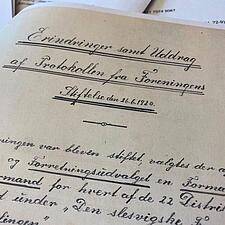 7074 9067
72-97
Erindringer samt Uddrag
af Protokollen fra Foreningens
Stiftelse den 26.6.1920.
ningen var bleven stiftet, valgtes der
og Forretningsudvalget en Forma
rmand for hvert af de 22 Distri
d under „Den slesvigske F
lingen"